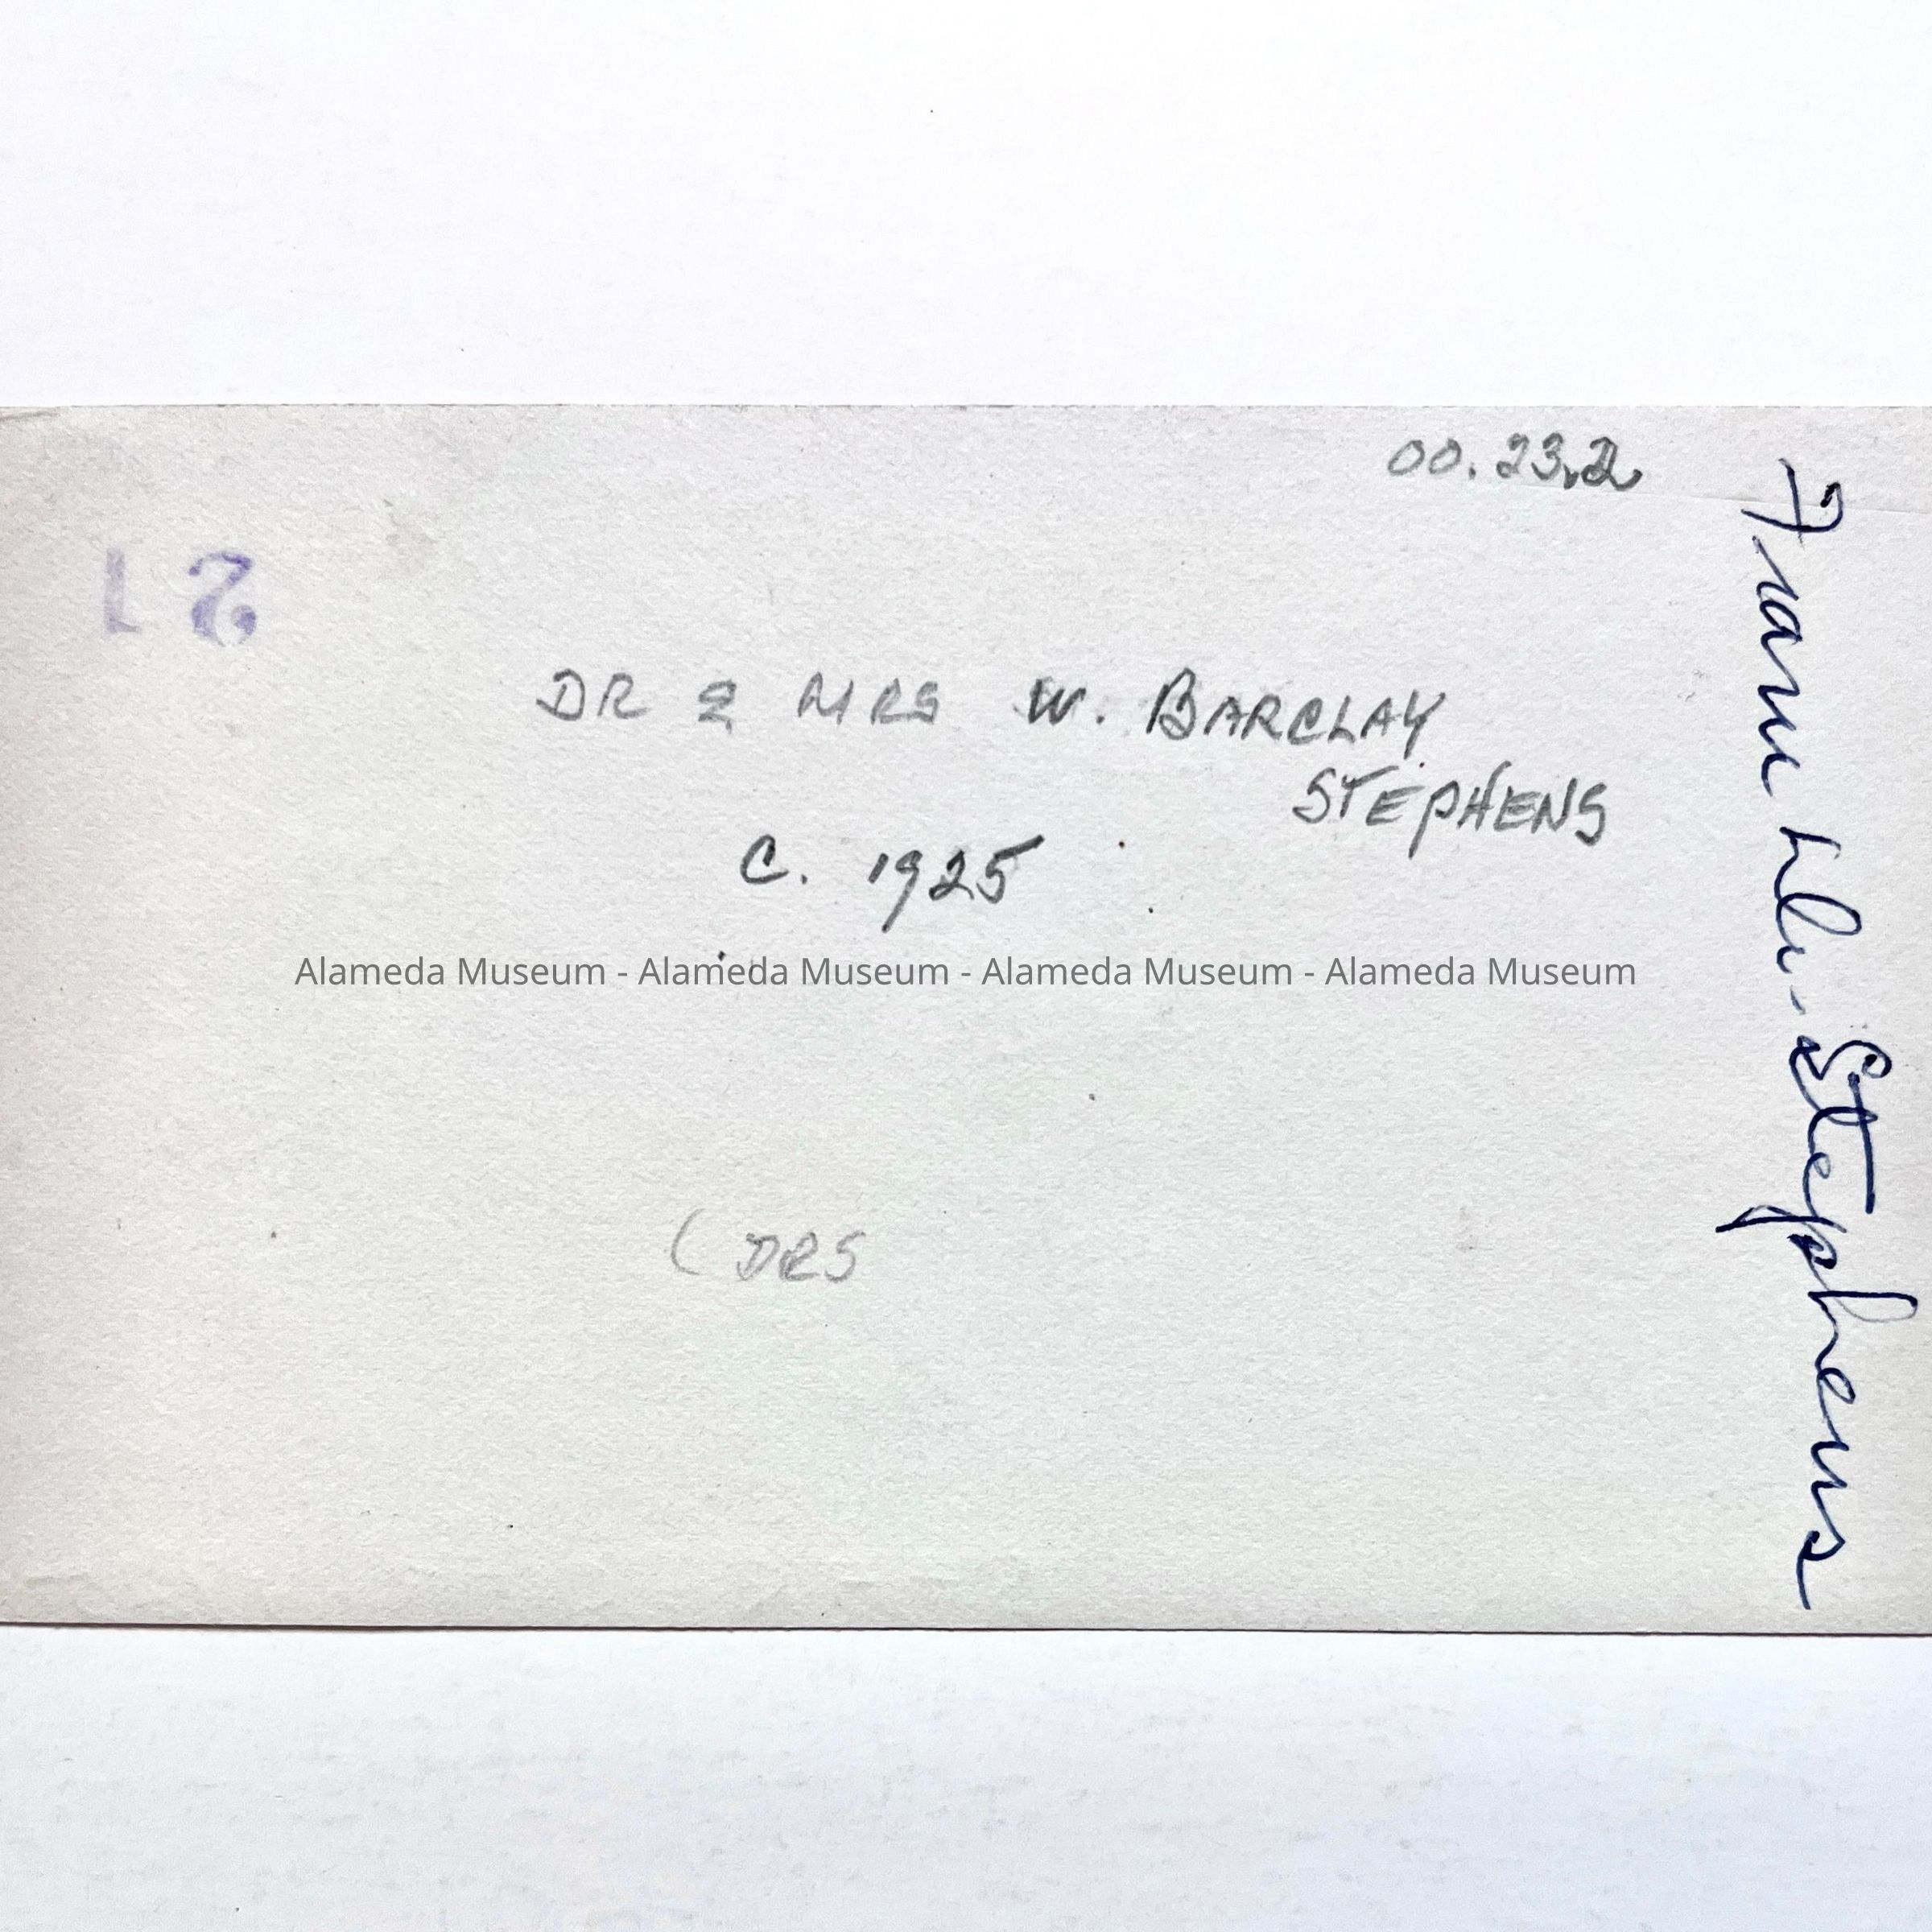 00.23.2
DR & MRS W. BARCLAY
STEPHENS
C. 1925
Alameda Museum - Alameda Museum - Alameda Museum - Alameda Museum
(DRS
Stephens